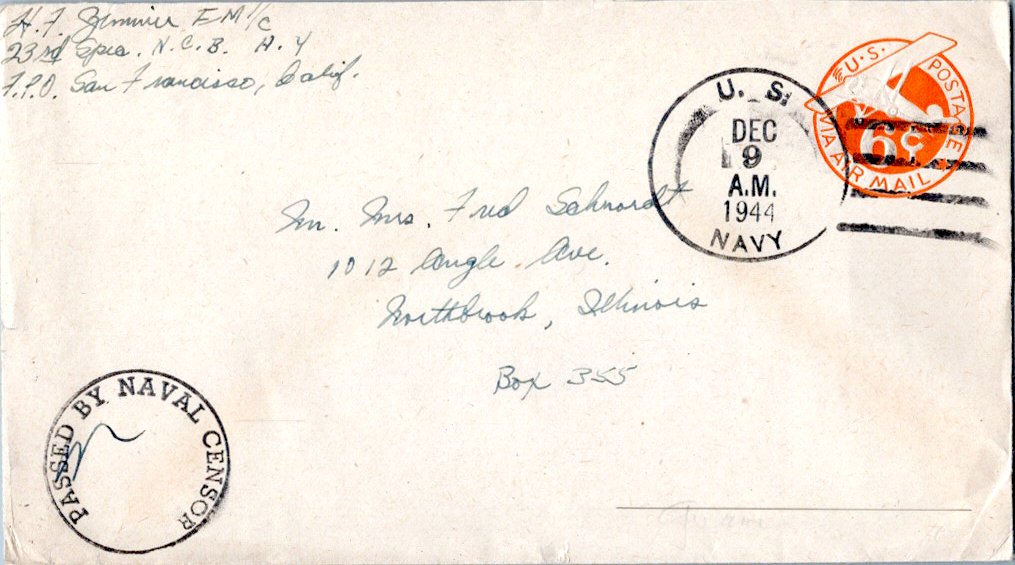 H. F. Zimmer EM 1/c
23rd Spec. N.C.B. H. 4
F.P.O. San Francisco, Calif.
U. S.
DEC
9
A.M.
1944
NAVY
U.S. POSTAGE
6¢
VIA AIR MAIL
Mr. Mrs. Fred Schnordt
1012 Angle Ave.
Northbrook, Illinois
Box 355
PASSED BY NAVAL CENSOR